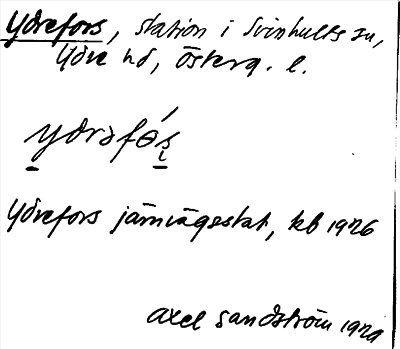 Ydrefors, station i Svinhults sn,
Ydre hd, Österg. l.
ydrəfɵ́s̩
Ydrefors järnvägsstat, kb 1926
Axel Sandström 1929